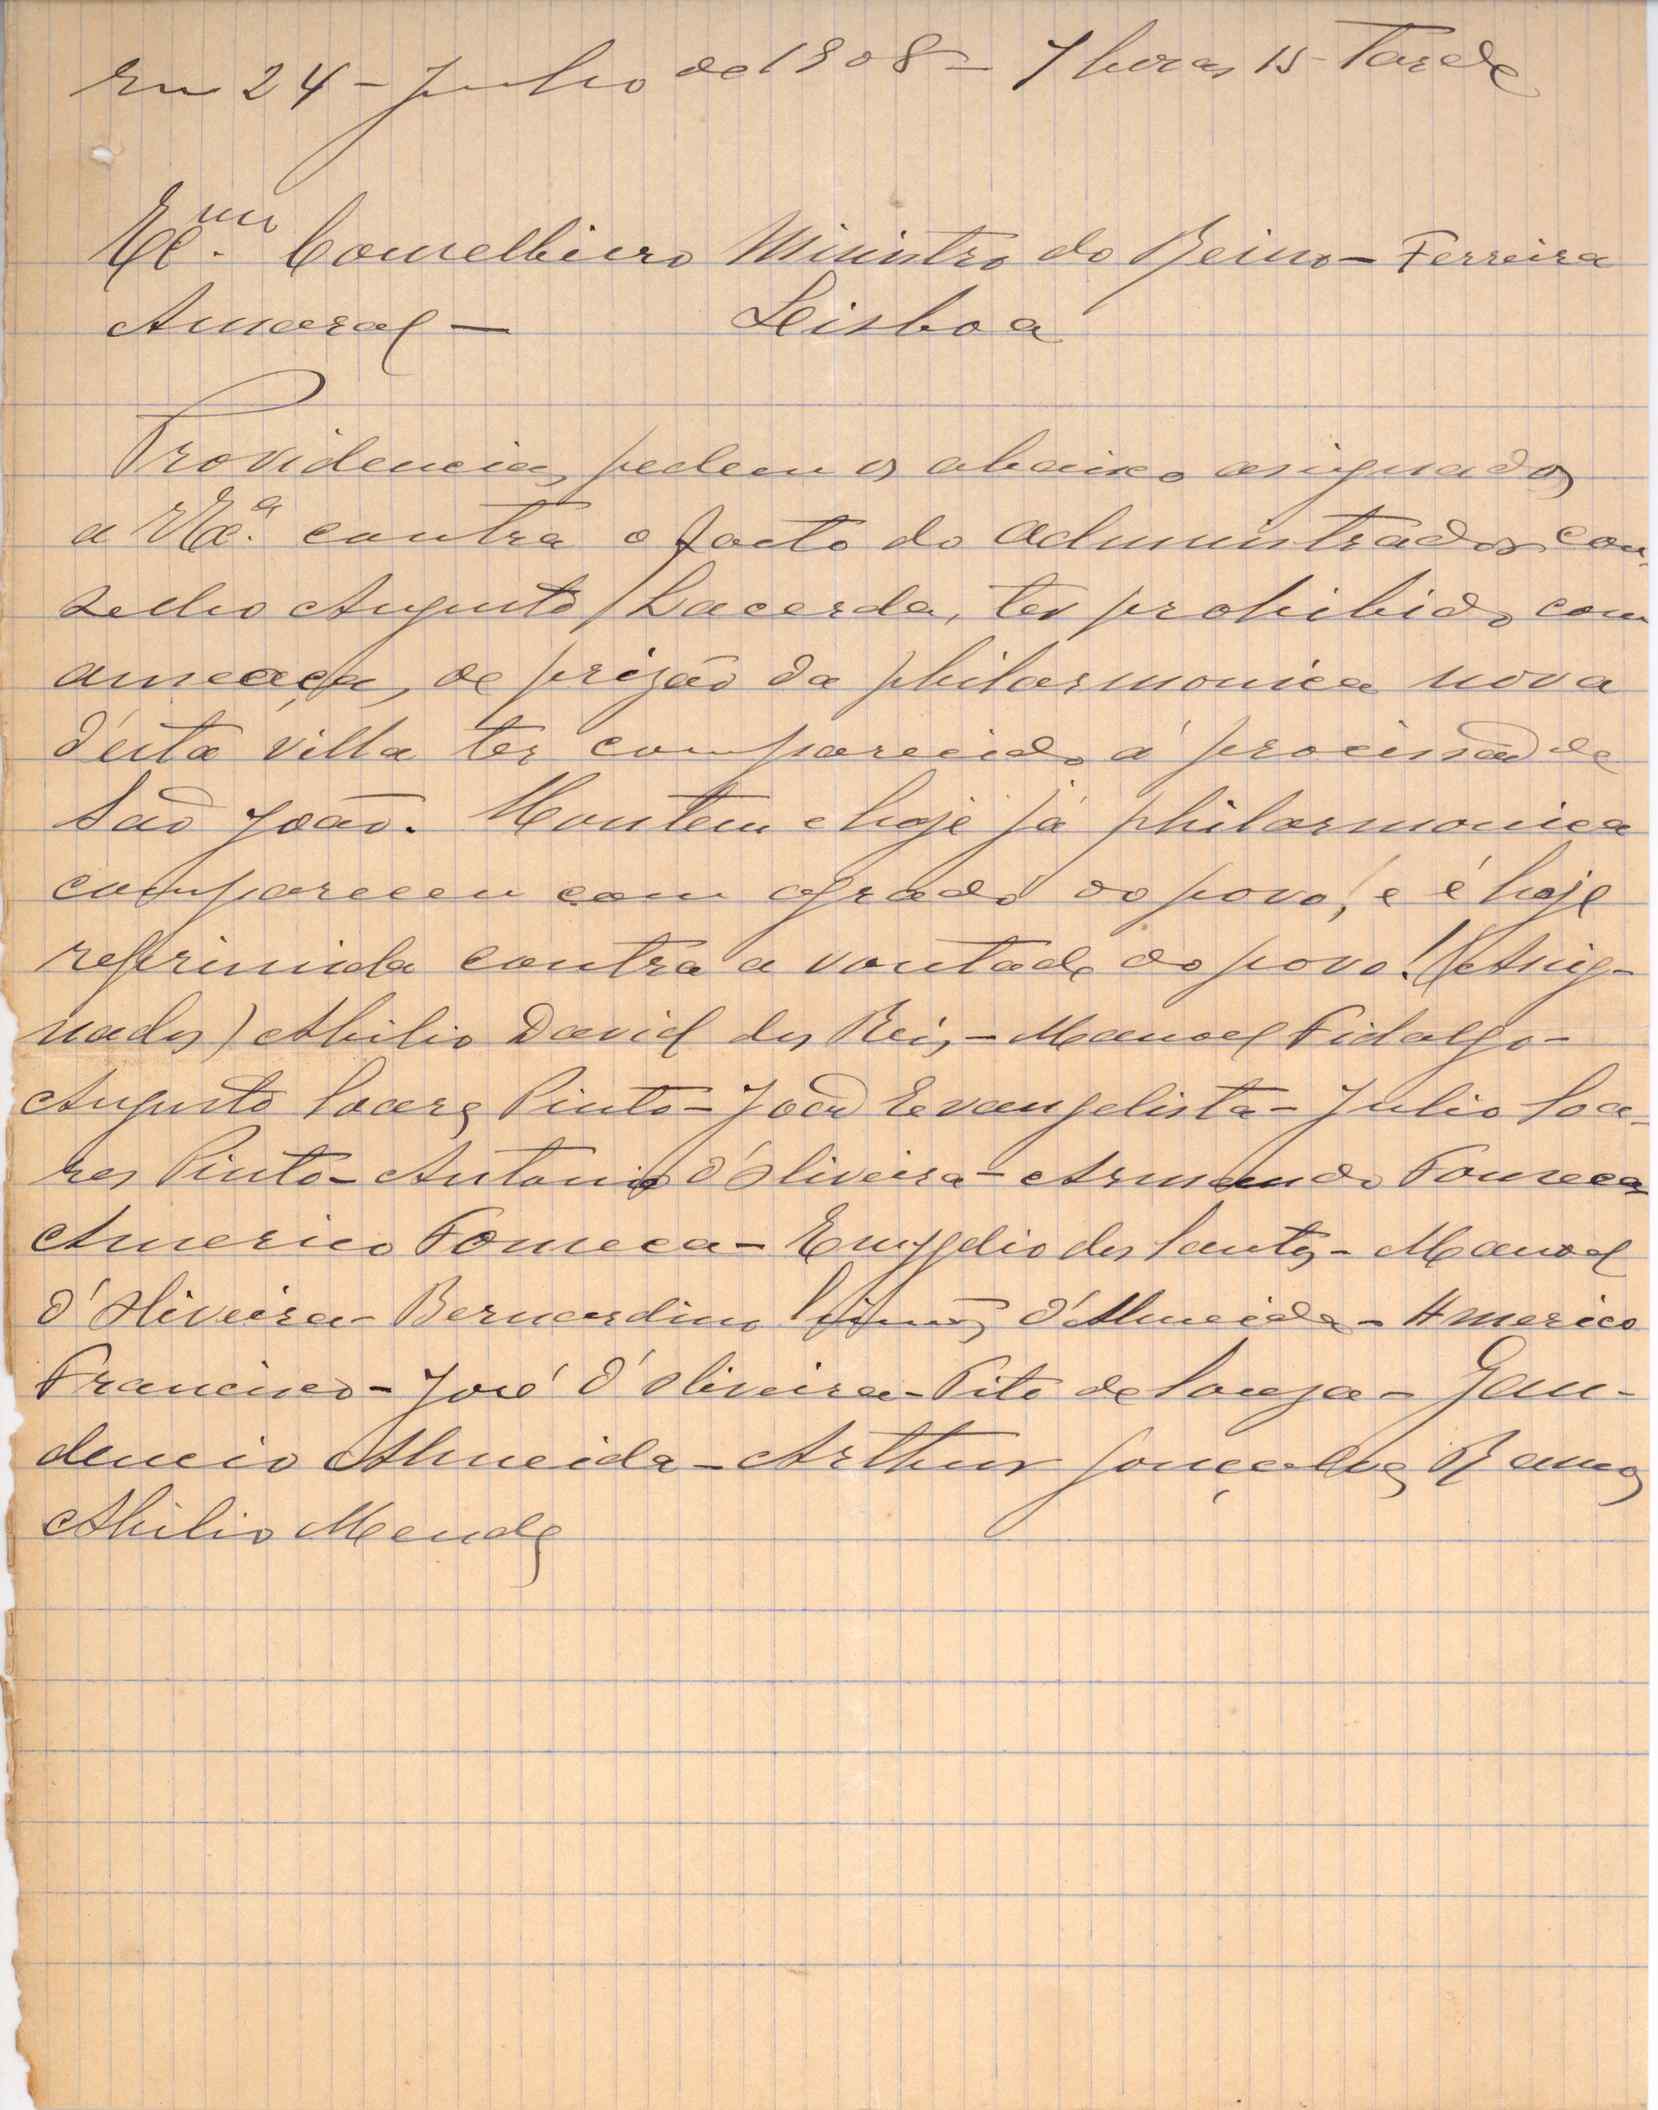 Em 24 - Junho de 1908 - 7 horas 15 - Tarde
Ex.mo Conselheiro Ministro do Reino - Ferreira
Amaral - Lisboa
Providencias, pedem os abaixo asignados
a V Ex.a contra o facto do administrador con-
selho Augusto Lacerda, ter prohibido com
ameaça, de prizão da philarmonica nova
d'esta villa ter comparecido á procissão de
São João. Hontem e hoje já philarmonica
compareceu com agrado do povo, e é hoje
reprimida contra a vontade do povo! (Asig-
nados) Abilio David dos Reis - Manoel Fidalgo -
Augusto Soares Pinto - João Evangelista - Julio Soa-
res Pinto - Antonio d'Oliveira - Armando Fonseca
Americo Fonseca - Emygdio dos Santos - Manoel
d'Oliveira - Bernardino d'Almeida - Americo
Francisco - José d'Oliveira - Tito de Souza - Gau-
dencio Almeida - Arthur Gonçalves Ramos
Abilio Mendes